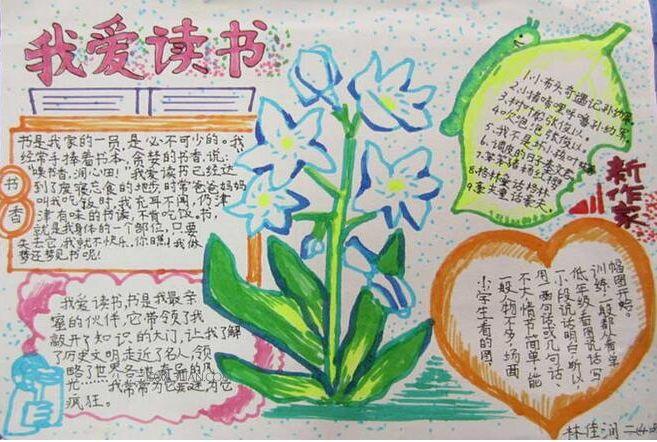 我爱读书
书是我家的一员,是必不可少的。我
经常手捧着书本,贪婪的书香,说:
“味书香,润心田!”我爱读书已经达
到了废寝忘食的地步,时常爸爸妈妈
叫我吃饭时,我充耳不闻,仍津
津有味的书读,不肯吃饭,书,
就是我身体的一个部位,只要
失去它,我就不快乐,你瞧!我做
梦还梦见书呢!
书
香
我爱读书,书是我最亲
密的伙伴,它带领了我
敲开了知识的大门,让我了解
了历史文明,走近了名人,领
略了世界各地
我常常为它
疯狂。
1.小布头奇遇记
2.小猪唏哩呼噜孙幼军
3.树叶船张秋生
4.吹泡泡张秋生
5.我不是坏小孩
6.调皮的日子秦文君
7.笨笨猪杨红樱
8.格林童话格林
9.豪夫童话豪夫
新作家
幅图开始
训练,一般都从看单
低年级看图说话、写
小段说话明白,所以
用一两句话或几句话、
不大,情节简单,能
一般人物不多,场面
小学生看的图,
林佳润